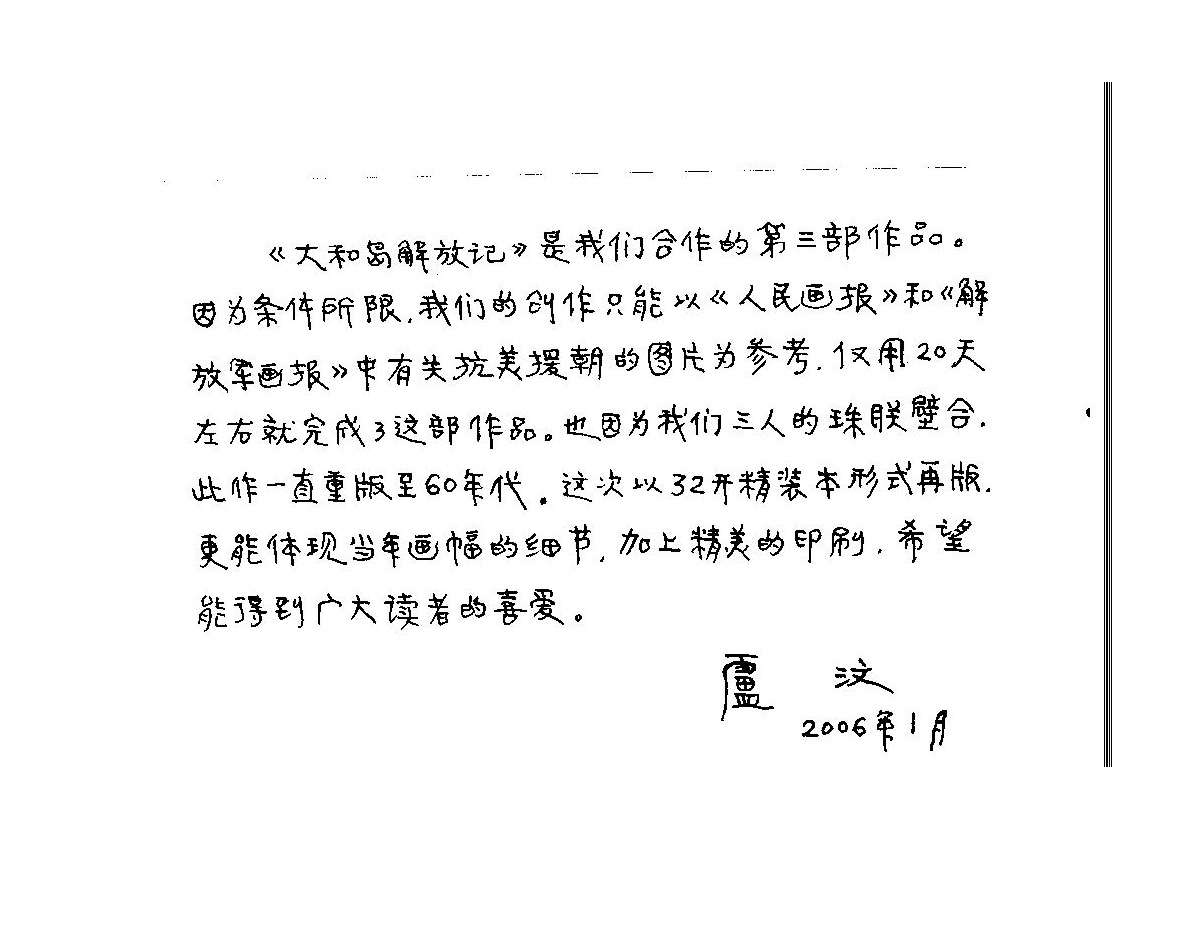 《大和岛解放记》是我们合作的第三部作品。
因为条件所限，我们的创作只能以《人民画报》和《解
放军画报》中有关抗美援朝的图片为参考，仅用20天
左右就完成了这部作品。也因为我们三人的珠联璧合，
此作一直重版至60年代。这次以32开精装本形式再版，
更能体现当年画幅的细节，加上精美的印刷，希望
能得到广大读者的喜爱。
盧 汶
2006年1月